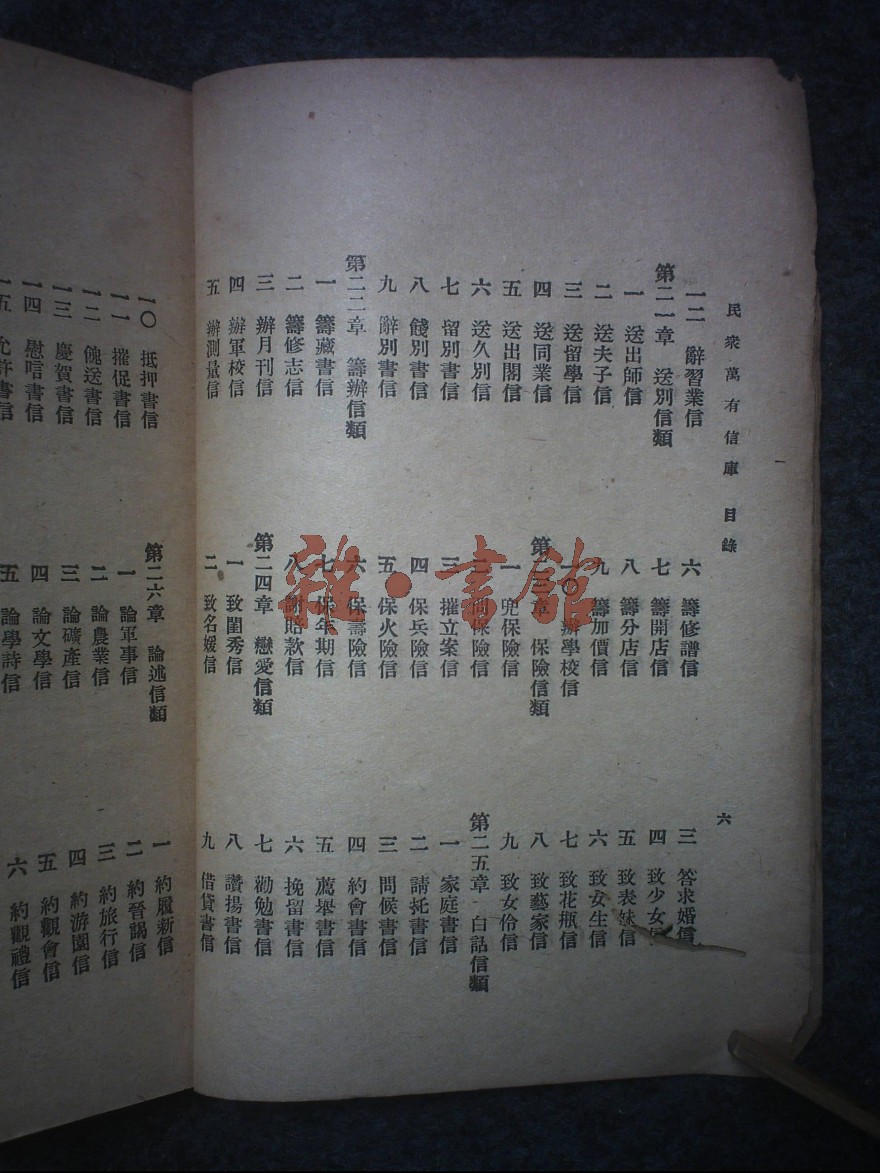 民衆萬有信庫 目錄
六
一二 辭習業信
第二一章 送別信類
一 送出師信
二 送夫子信
三 送留學信
四 送同業信
五 送出閣信
六 送久別信
七 留別書信
八 餞別書信
九 辭別書信
第二二章 籌辦信類
一 籌藏書信
二 籌修志信
三 辦月刊信
四 辦軍校信
五 辦測量信
六 籌修譜信
七 籌開店信
八 籌分店信
九 籌加價信
一〇 辦學校信
第二三章 保險信類
一 兜保險信
二 保險信
三 摧立案信
四 保兵險信
五 保火險信
六 保壽險信
七 保年期信
八 謝賠款信
第二四章 戀愛信類
一 致閨秀信
二 致名媛信
三 答求婚信
四 致少女
五 致表妹信
六 致女生信
七 致花瓶信
八 致藝家信
九 致女伶信
第二五章 白話信類
一 家庭書信
二 請托書信
三 問候書信
四 約會書信
五 薦舉書信
六 挽留書信
七 勸勉書信
八 讚揚書信
九 借貸書信
一〇 抵押書信
一一 摧促書信
一二 餽送書信
一三 慶賀書信
一四 慰唁書信
一五 允許書信
第二六章 論述信類
一 論軍事信
二 論農業信
三 論礦產信
四 論文學信
五 論學詩信
一 約履新信
二 約晉謁信
三 約旅行信
四 約游園信
五 約觀會信
六 約觀禮信
雜·書館